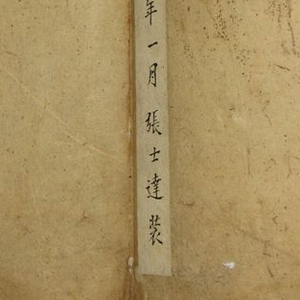 年一月張士達裝